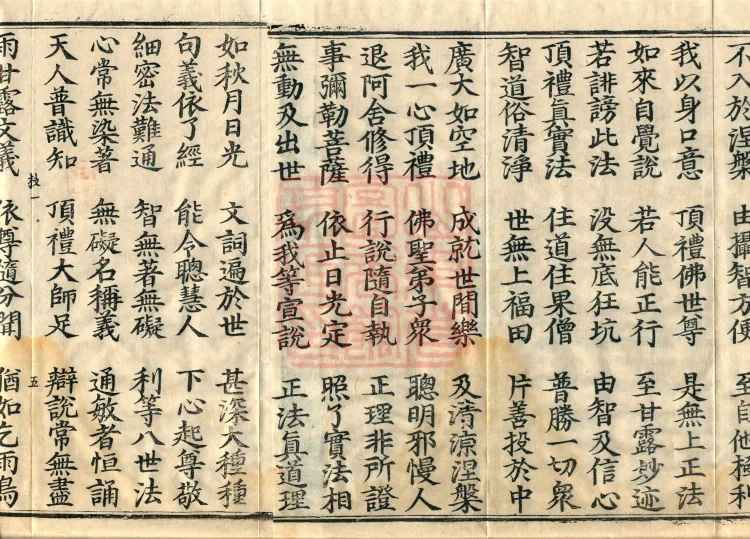 不入於涅槃 由攝智方便 至自他極利
我以身口意 頂禮佛世尊 是無上正法
如來自覺說 若人能正行 至甘露妙迹
若誹謗此法 没無底狂坑 由智及信心
頂禮眞實法 住道住果僧 普勝一切衆
智道俗清淨 世無上福田 片善投於中
廣大如空地 成就世間樂 及清涼涅槃
我一心頂禮 佛聖弟子衆 聰明邪慢人
退阿舍修得 行說隨自執 正理非所證
事彌勒菩薩 依止日光定 照了實法相
無動及出世 爲我等宣說 正法眞道理
如秋月日光 文詞遍於世 甚深大種種
句義依了經 能令聰慧人 下心起尊敬
細密法難通 智無著無礙 利等八世法
心常無染著 無礙名稱義 通敏者恒誦
天人普識知 頂禮大師足 辯說常無盡
一 五
雨甘露文義 依尊隨分聞 猶如乞雨鳥